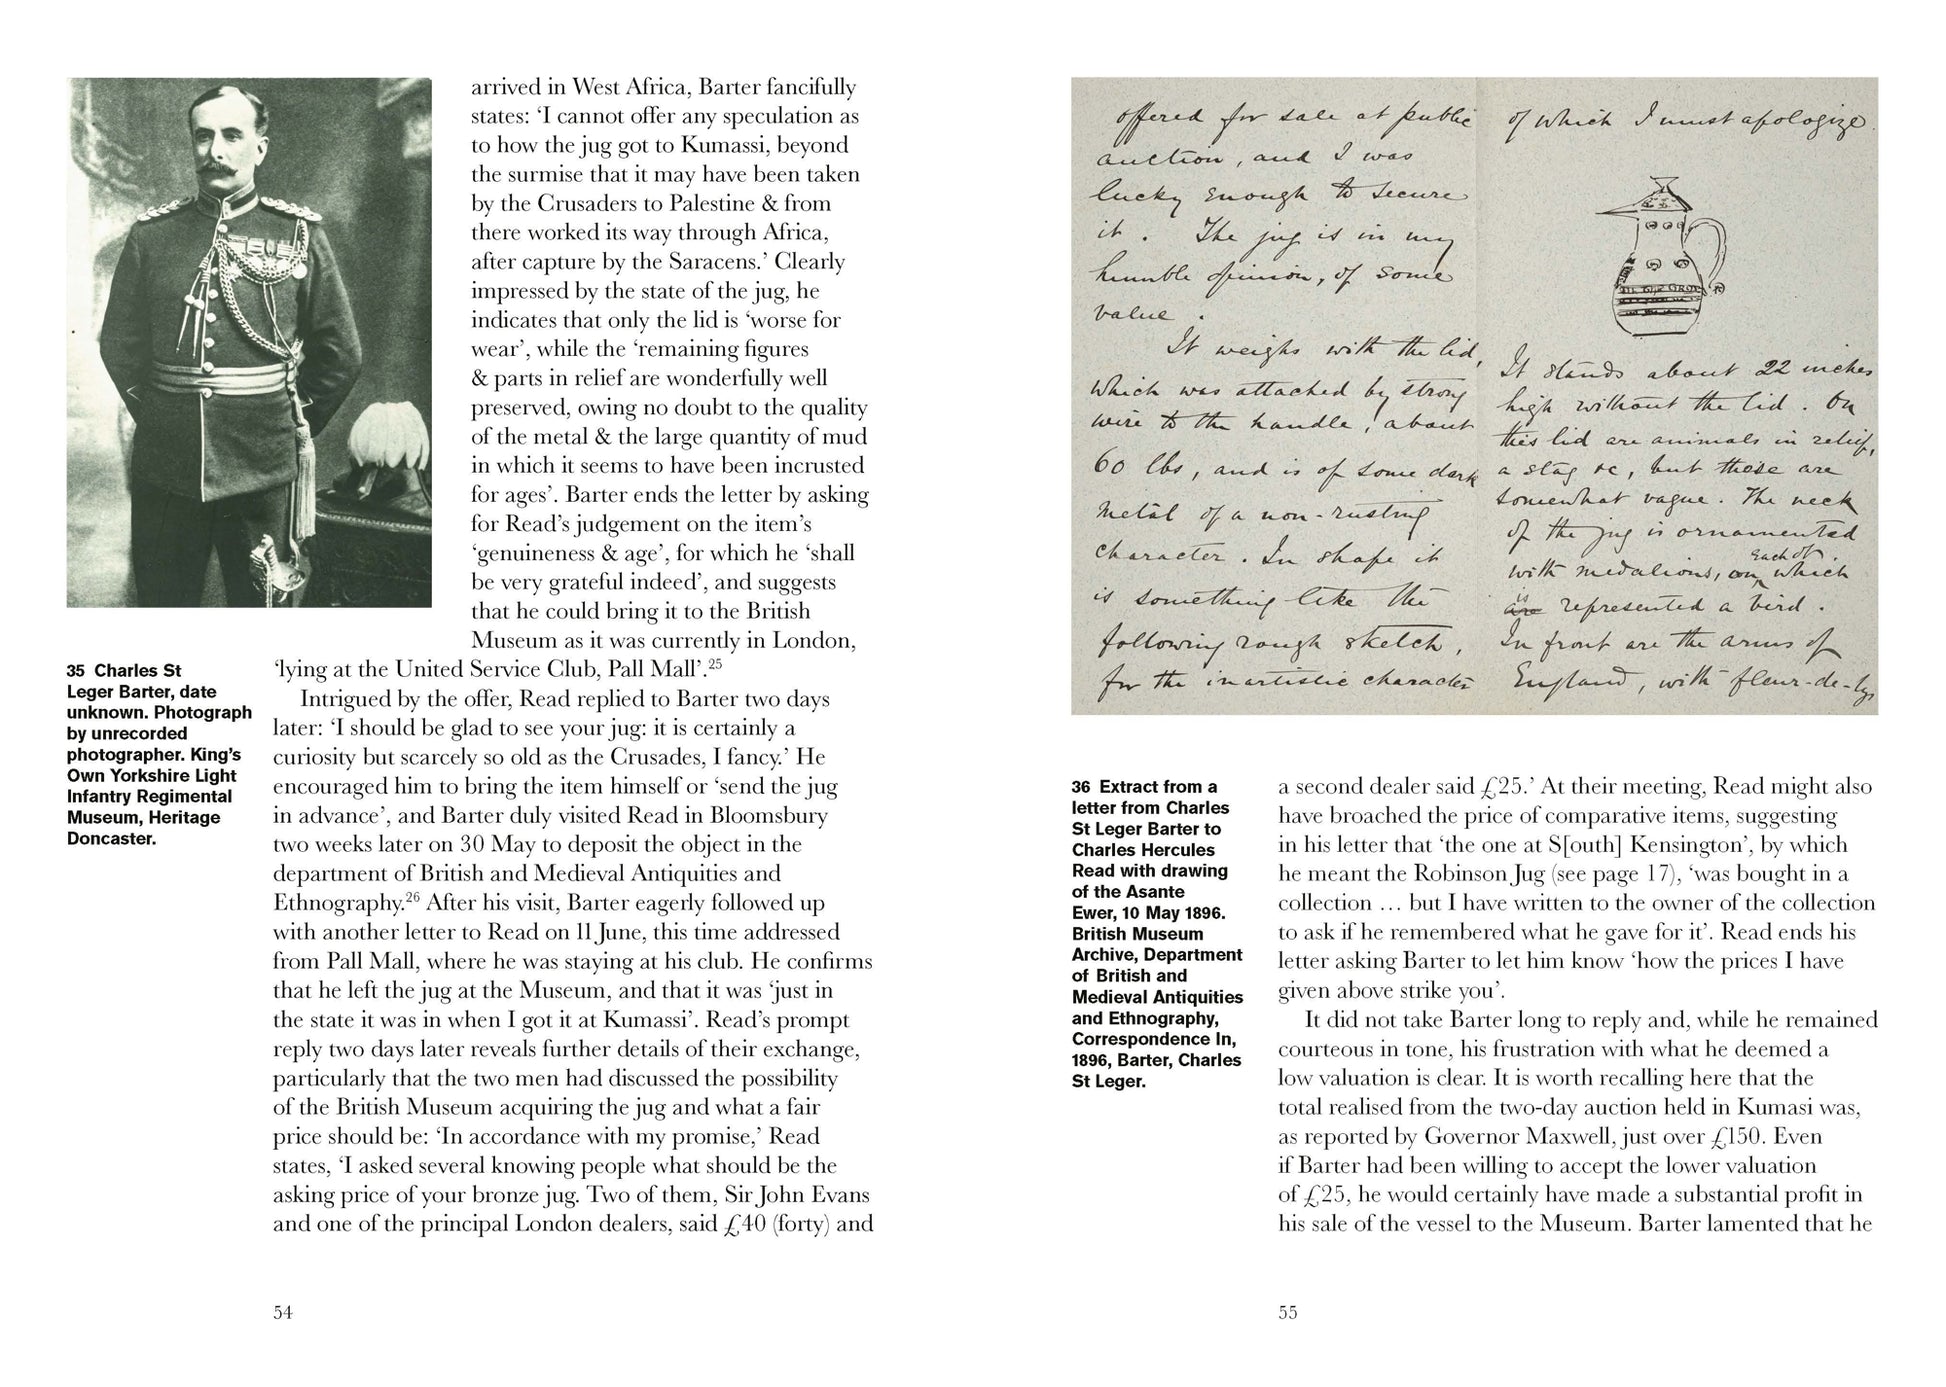 arrived in West Africa, Barter fancifully
states: ‘I cannot offer any speculation as
to how the jug got to Kumassi, beyond
the surmise that it may have been taken
by the Crusaders to Palestine & from
there worked its way through Africa,
after capture by the Saracens.’ Clearly
impressed by the state of the jug, he
indicates that only the lid is ‘worse for
wear’, while the ‘remaining figures
& parts in relief are wonderfully well
preserved, owing no doubt to the quality
of the metal & the large quantity of mud
in which it seems to have been incrusted
for ages’. Barter ends the letter by asking
for Read’s judgement on the item’s
‘genuineness & age’, for which he ‘shall
be very grateful indeed’, and suggests
that he could bring it to the British
Museum as it was currently in London,
‘lying at the United Service Club, Pall Mall’.25
Intrigued by the offer, Read replied to Barter two days
later: ‘I should be glad to see your jug: it is certainly a
curiosity but scarcely so old as the Crusades, I fancy.’ He
encouraged him to bring the item himself or ‘send the jug
in advance’, and Barter duly visited Read in Bloomsbury
two weeks later on 30 May to deposit the object in the
department of British and Medieval Antiquities and
Ethnography.26 After his visit, Barter eagerly followed up
with another letter to Read on 11 June, this time addressed
from Pall Mall, where he was staying at his club. He confirms
that he left the jug at the Museum, and that it was ‘just in
the state it was in when I got it at Kumassi’. Read’s prompt
reply two days later reveals further details of their exchange,
particularly that the two men had discussed the possibility
of the British Museum acquiring the jug and what a fair
price should be: ‘In accordance with my promise,’ Read
states, ‘I asked several knowing people what should be the
asking price of your bronze jug. Two of them, Sir John Evans
and one of the principal London dealers, said £40 (forty) and
35 Charles St
Leger Barter, date
unknown. Photograph
by unrecorded
photographer. King’s
Own Yorkshire Light
Infantry Regimental
Museum, Heritage
Doncaster.
54
offered for sale at public
auction, and I was
lucky enough to secure
it. The jug is in my
humble opinion, of some
value.
It weighs with the lid,
which was attached by strong
wire to the handle, about
60 lbs, and is of some dark
metal of a non-rusting
character. In shape it
is something like the
following rough sketch,
for the inartistic character
of which I must apologize
It stands about 22 inches
high without the lid. On
this lid are animals in relief,
a stag &c, but these are
somewhat vague. The neck
of the jug is ornamented
with medalions, on each of which
is represented a bird.
In front are the arms of
England, with fleur-de-lys
36 Extract from a
letter from Charles
St Leger Barter to
Charles Hercules
Read with drawing
of the Asante
Ewer, 10 May 1896.
British Museum
Archive, Department
of British and
Medieval Antiquities
and Ethnography,
Correspondence In,
1896, Barter, Charles
St Leger.
a second dealer said £25.’ At their meeting, Read might also
have broached the price of comparative items, suggesting
in his letter that ‘the one at S[outh] Kensington’, by which
he meant the Robinson Jug (see page 17), ‘was bought in a
collection … but I have written to the owner of the collection
to ask if he remembered what he gave for it’. Read ends his
letter asking Barter to let him know ‘how the prices I have
given above strike you’.
It did not take Barter long to reply and, while he remained
courteous in tone, his frustration with what he deemed a
low valuation is clear. It is worth recalling here that the
total realised from the two-day auction held in Kumasi was,
as reported by Governor Maxwell, just over £150. Even
if Barter had been willing to accept the lower valuation
of £25, he would certainly have made a substantial profit in
his sale of the vessel to the Museum. Barter lamented that he
55